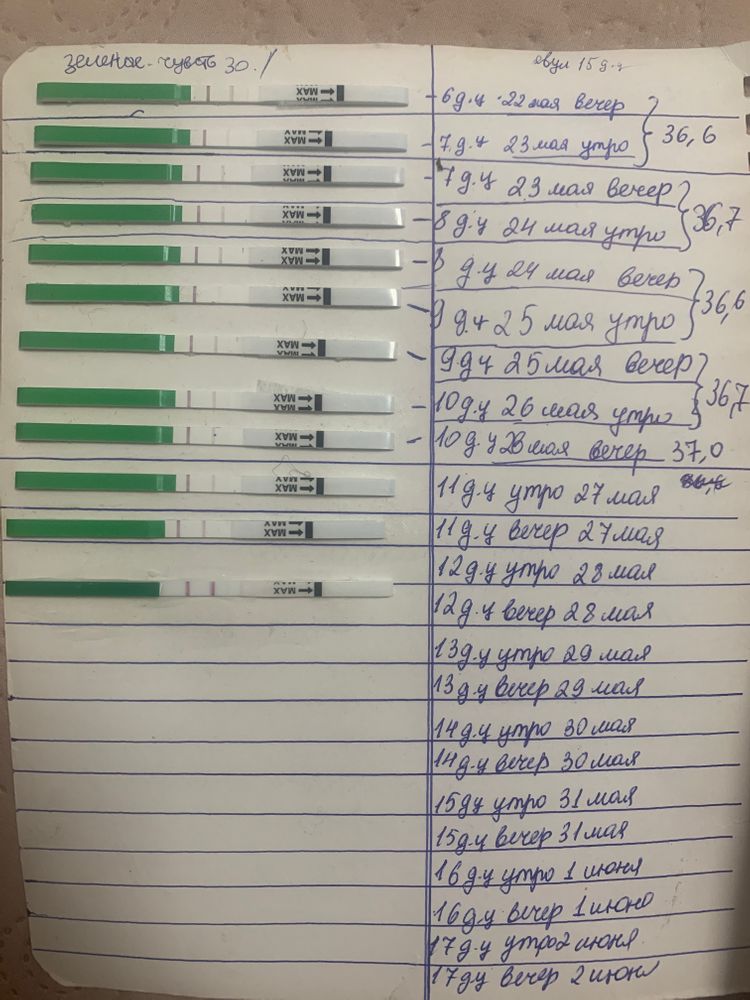 зеленое - чувств 30. /
овул 15 д.ц
MAX
6 д.ц 22 мая вечер
36,6
MAX
7 д.ц 23 мая утро
MAX
7 д.ц 23 мая вечер
36,7
MAX
8 д.ц 24 мая утро
MAX
8 д.ц 24 мая вечер
36,6
MAX
9 д.ц 25 мая утро
MAX
9 д.ц 25 мая вечер
36,7
MAX
10 д.ц 26 мая утро
MAX
10 д.ц 26 мая вечер 37,0
MAX
11 д.ц утро 27 мая
MAX
11 д.ц вечер 27 мая
12 д.ц утро 28 мая
MAX
12 д.ц вечер 28 мая
13 д.ц утро 29 мая
13 д.ц вечер 29 мая
14 д.ц утро 30 мая
14 д.ц вечер 30 мая
15 дц утро 31 мая
15 д.ц вечер 31 мая
16 д.ц утро 1 июня
16 д.ц вечер 1 июня
17 д.ц утро 2 июня
17 дц вечер 2 июня